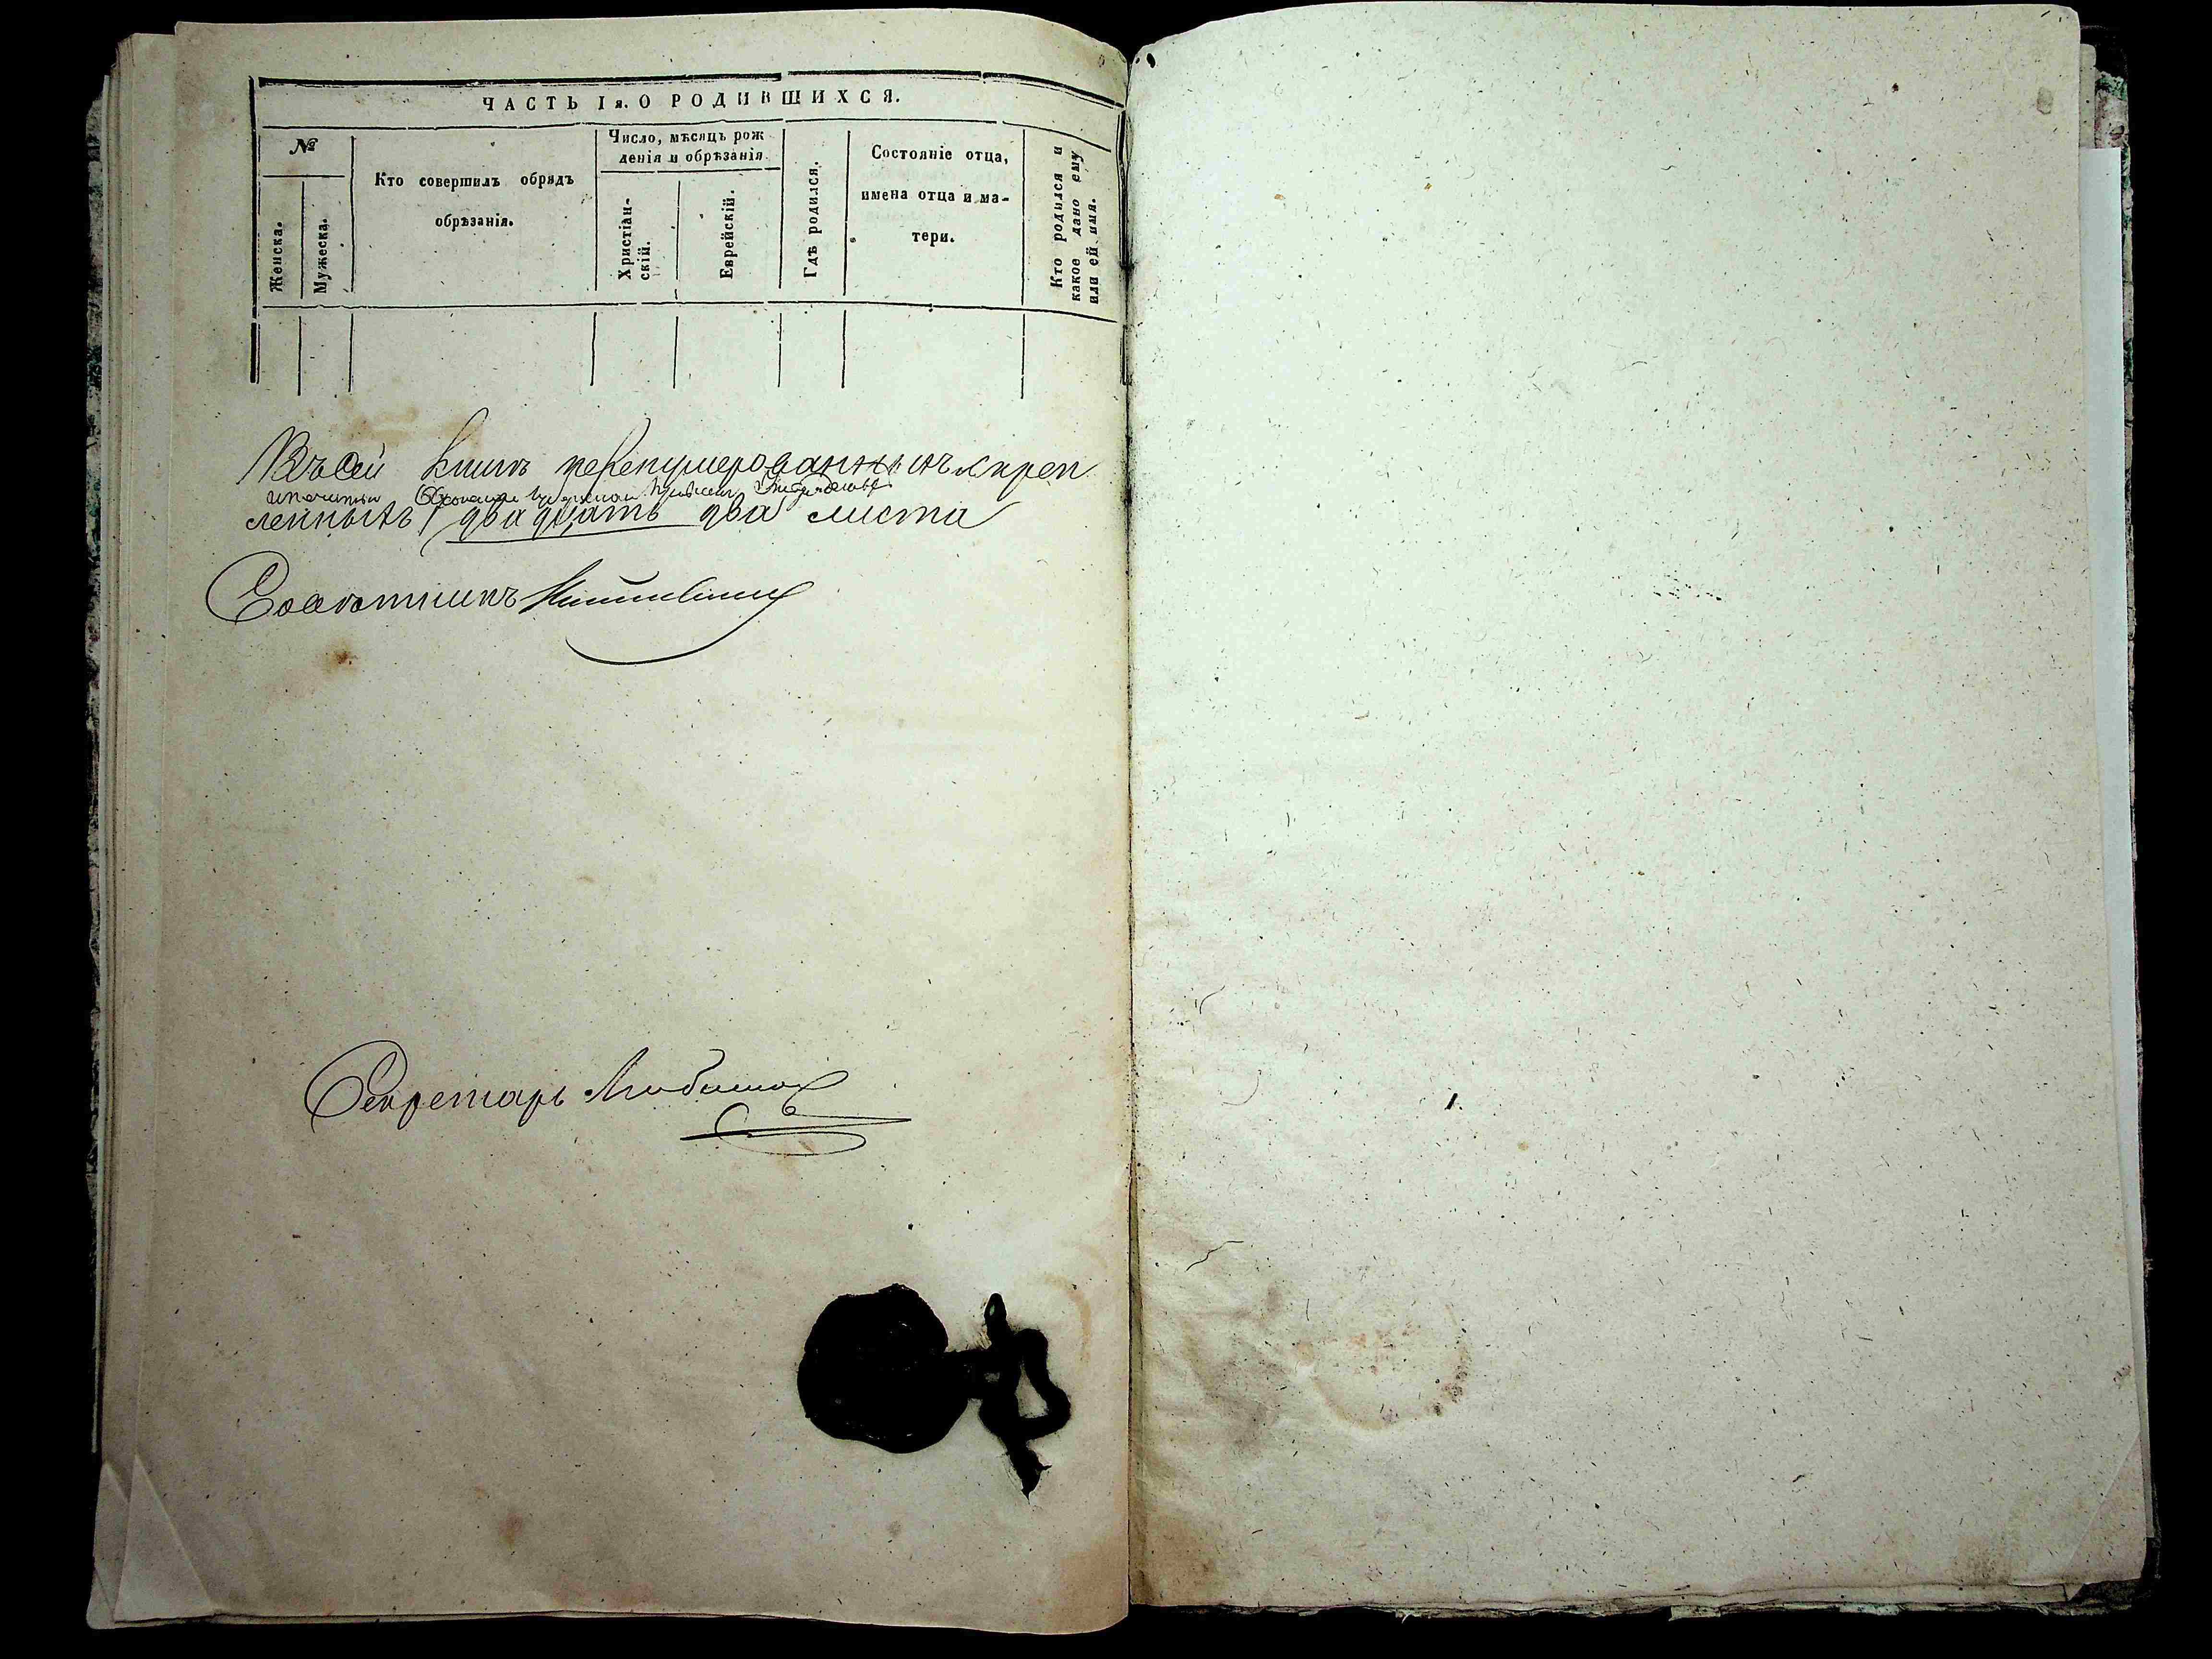 ЧАСТЬ Iя. О РОДИВШИХСЯ.
№
Женска.
Мужеска.
Кто совершилъ обрядъ
обрѣзанія.
Число, мѣсяцъ рож
денія и обрѣзанія.
Христіан-
скій.
Еврейскій.
Гдѣ родился.
Состояніе отца,
имена отца и ма-
тери.
Кто родился и
какое дано ему
или ей имя.
Въ сей книгѣ перенумерованныхъ скреп
ленныхъ двадцать два листа
Совѣтникъ
Секретарь